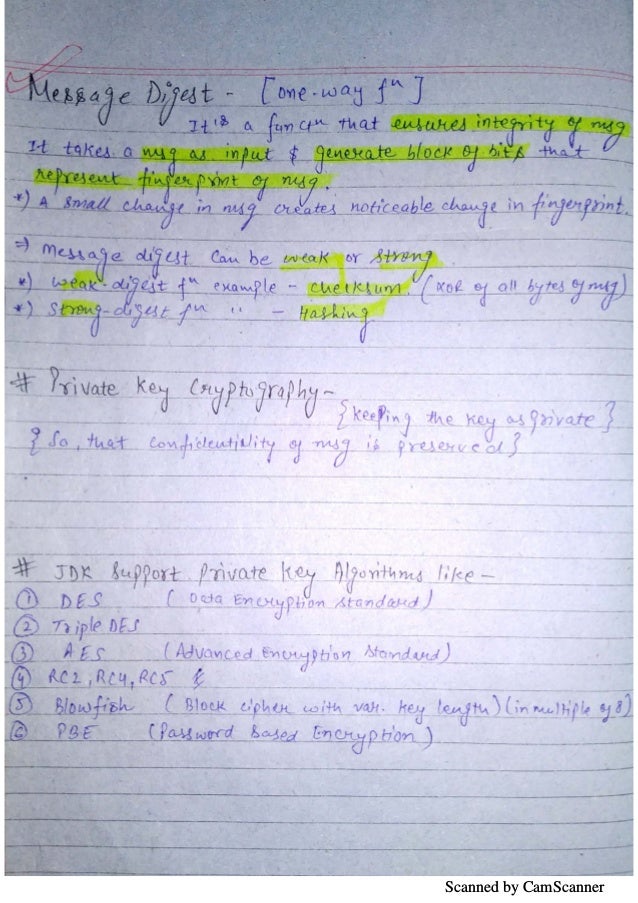 Message Digest - [one-way fⁿ]
It is a functⁿ that ensures integrity of msg
It takes a msg as input & generate block of bits that
represent fingerprint of msg.
*) A small change in msg creates noticeable change in fingerprint.
⇒ Message digest can be weak or strong
*) weak-digest fⁿ example - checksum. (XOR of all bytes of msg)
*) Strong-digest fⁿ " - Hashing
# Private Key Cryptography -
{Keeping the key as private}
{So, that confidentiality of msg is preserved}
# JDK Support Private Key Algorithms like -
① DES (Data Encryption Standard)
② Triple DES
③ AES (Advanced Encryption Standard)
④ RC2, RC4, RC5
⑤ Blowfish (Block cipher with var. key length) (in multiple of 8)
⑥ PBE (Password Based Encryption)
Scanned by CamScanner